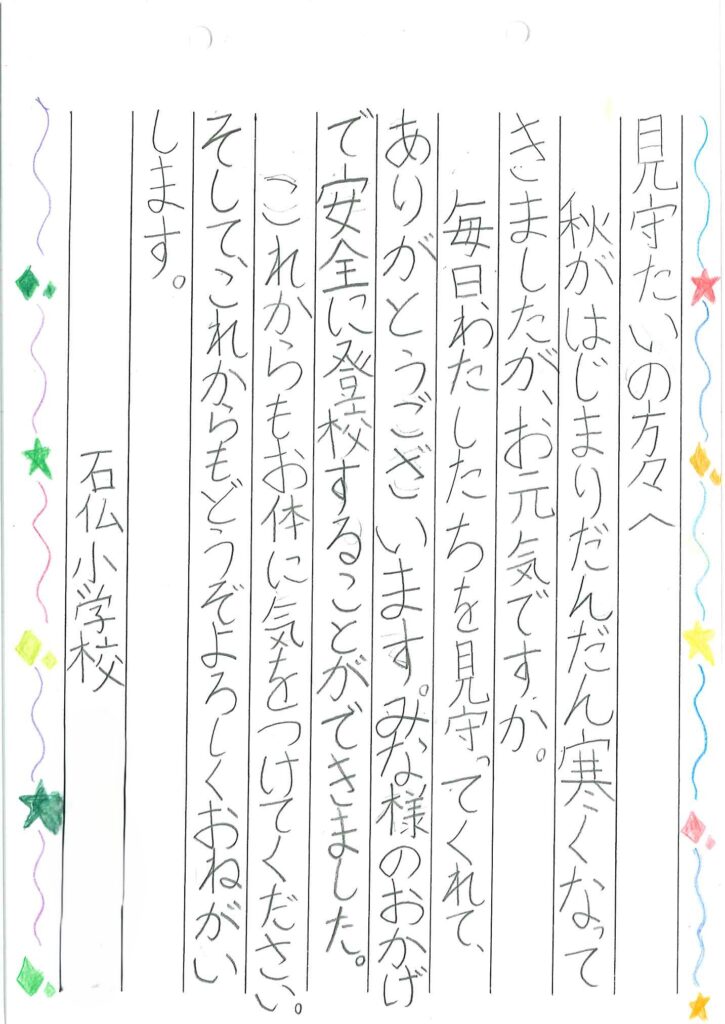 見守たいの方々へ
秋がはじまりだんだん寒くなって
きましたが、お元気ですか。
毎日、わたしたちを見守ってくれて、
ありがとうございます。みな様のおかげ
で安全に登校することができました。
これからもお体に気をつけてください。
そして、これからもどうぞよろしくおねがい
します。
石仏小学校